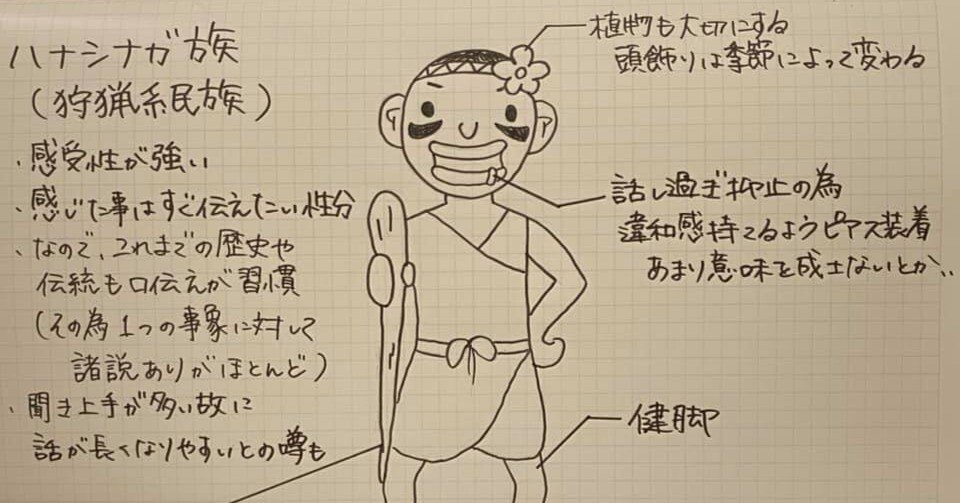 ハナシナガ族
(狩猟系民族)
・感受性が強い
・感じた事はすぐ伝えたい性分
・なので、これまでの歴史や
伝統も口伝えが習慣
(その為1つの事象に対して
諸説ありがほとんど)
・聞き上手が多い故に
話が長くなりやすいとの噂も
植物も大切にする
頭飾りは季節によって変わる
話し過ぎ抑止の為
違和感持てるようピアス装着
あまり意味を成さないとか..
健脚